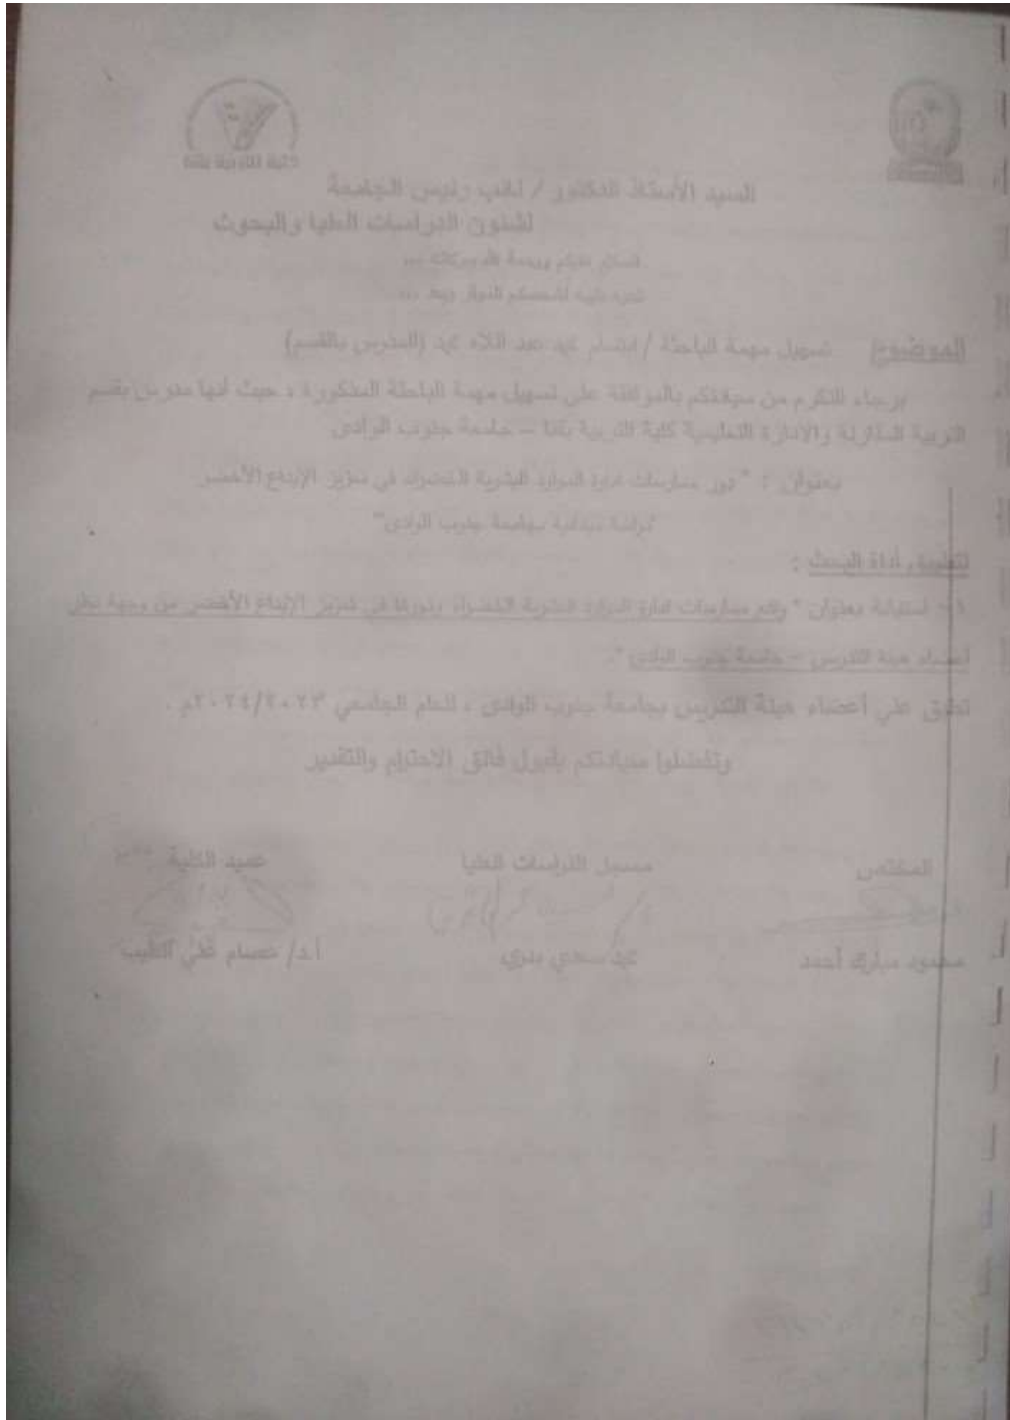 كلية التربية بقنا
السيد الأستاذ الدكتور / نائب رئيس الجامعة
لشئون الدراسات العليا والبحوث
السلام عليكم ورحمة الله وبركاته ...
تحية طيبة لشخصكم الموقر وبعد ...
الموضوع تسهيل مهمة الباحثة / ابتسام عبد الله (المدرس بالقسم)
برجاء التكرم من سيادتكم بالموافقة على تسهيل مهمة الباحثة المذكورة ، حيث أنها مدرس بقسم
التربية المقارنة والإدارة التعليمية كلية التربية بقنا – جامعة جنوب الوادى
بعنوان : " دور ممارسات إدارة الموارد البشرية الخضراء في تعزيز الإبداع الأخضر
"دراسة ميدانية بجامعة جنوب الوادى"
لتطبيق أداة البحث :
١- استبانة بعنوان " واقع ممارسات إدارة الموارد البشرية الخضراء ودورها في تعزيز الإبداع الأخضر من وجهة نظر
أعضاء هيئة التدريس – جامعة جنوب الوادى ".
تطبق علي أعضاء هيئة التدريس بجامعة جنوب الوادى ، للعام الجامعي ٢٠٢٣/٢٠٢٤م .
وتفضلوا سيادتكم بقبول فائق الاحترام والتقدير
المختص مسجل الدراسات العليا عميد الكلية
محمود مبارك أحمد بدري أ.د/ عصام علي الطيب